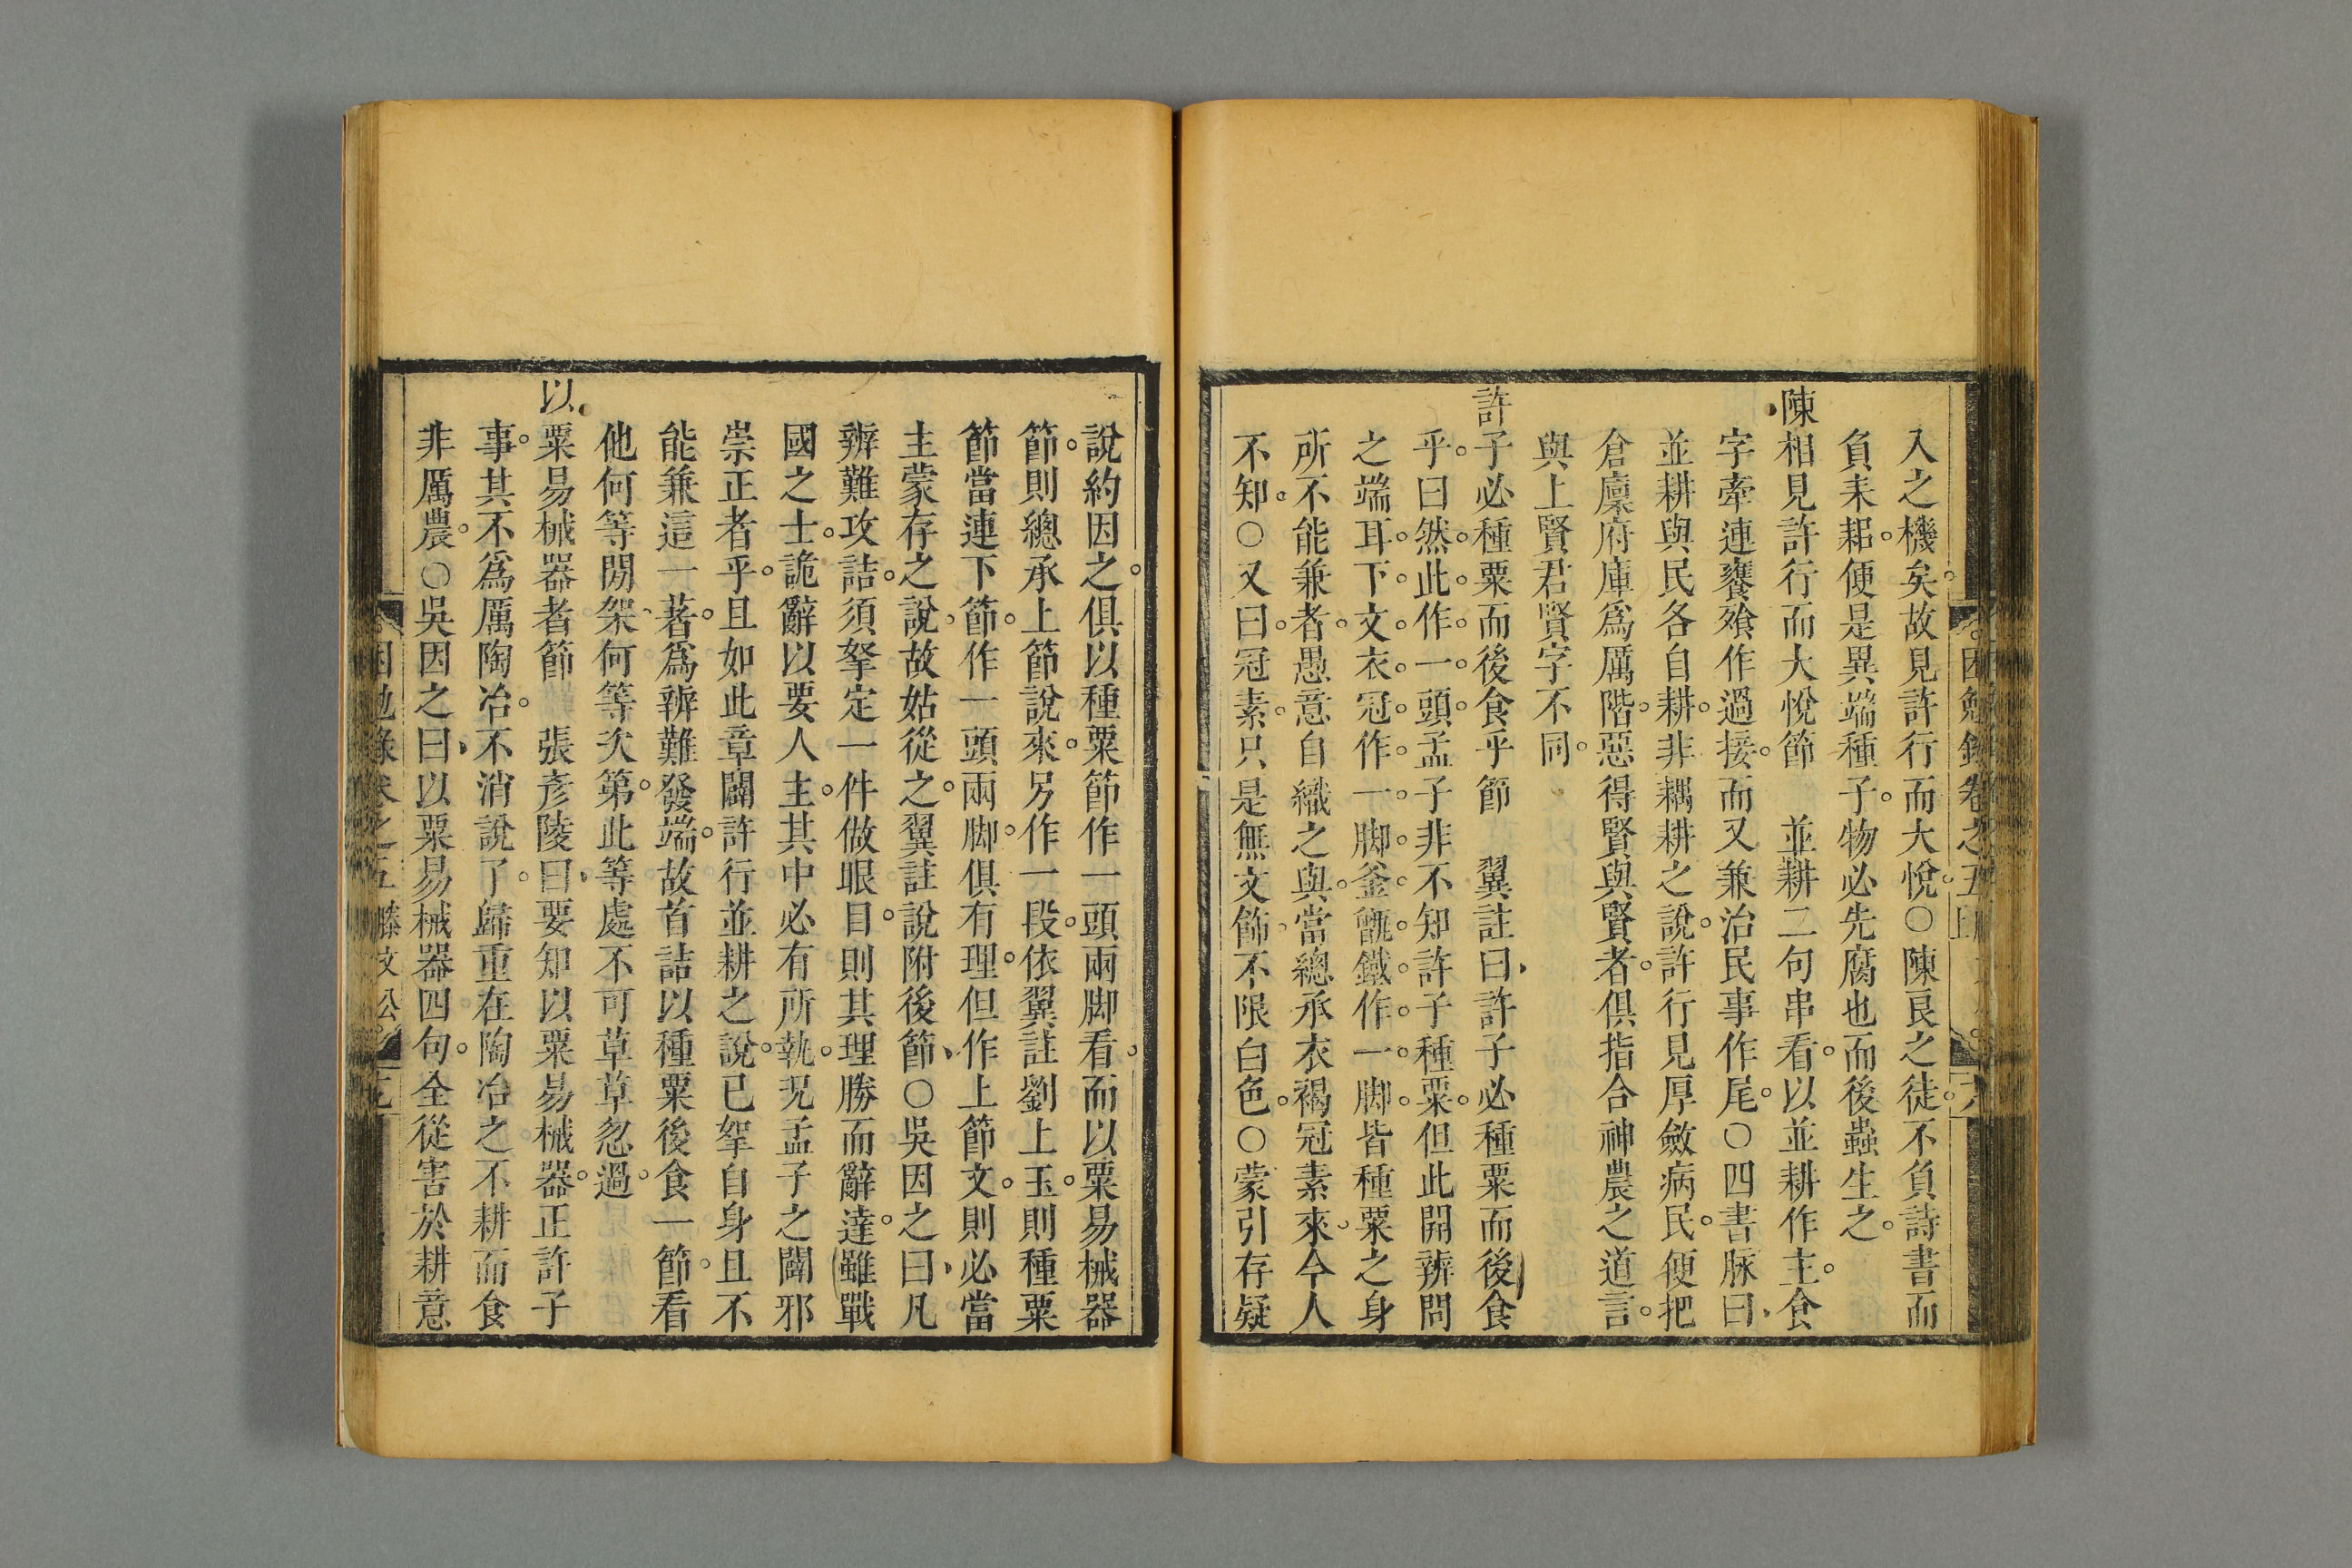 入之機矣故見許行而大悅○陳良之徒不負詩書而
負耒耜便是異端種子物必先腐也而後蟲生之
陳相見許行而大悅節　並耕二句串看以並耕作主食
字牽連饔飧作過接而又兼治民事作尾○四書脉曰
並耕與民各自耕非耦耕之說許行見厚斂病民便把
倉廩府庫爲厲階惡得賢與賢者俱指合神農之道言
與上賢君賢字不同
許子必種粟而後食乎節　翼註曰許子必種粟而後食
乎曰然此作一頭孟子非不知許子種粟但此開辨問
之端耳下文衣冠作一脚釜甑鐵作一脚皆種粟之身
所不能兼者愚意自織之與當總承衣褐冠素來今人
不知○又曰冠素只是無文飾不限白色○蒙引存疑
說約因之俱以種粟節作一頭兩脚看而以粟易械器
節則總承上節說來另作一段依翼註劉上玉則種粟
節當連下節作一頭兩脚俱有理但作上節文則必當
主蒙存之說故姑從之翼註說附後節○吳因之曰凡
辨難攻詰須拏定一件做眼目則其理勝而辭達雖戰
國之士詭辭以要人主其中必有所執况孟子之闢邪
崇正者乎且如此章闢許行並耕之說已拏自身且不
能兼這一著爲辨難發端故首詰以種粟後食一節看
他何等間架何等次第此等處不可草草忽過
以粟易械器者節　張彥陵曰要知以粟易械器正許子
事其不爲厲陶冶不消說了歸重在陶冶之不耕而食
非厲農○吳因之曰以粟易械器四句全從害於耕意
困勉錄卷之五　滕文公